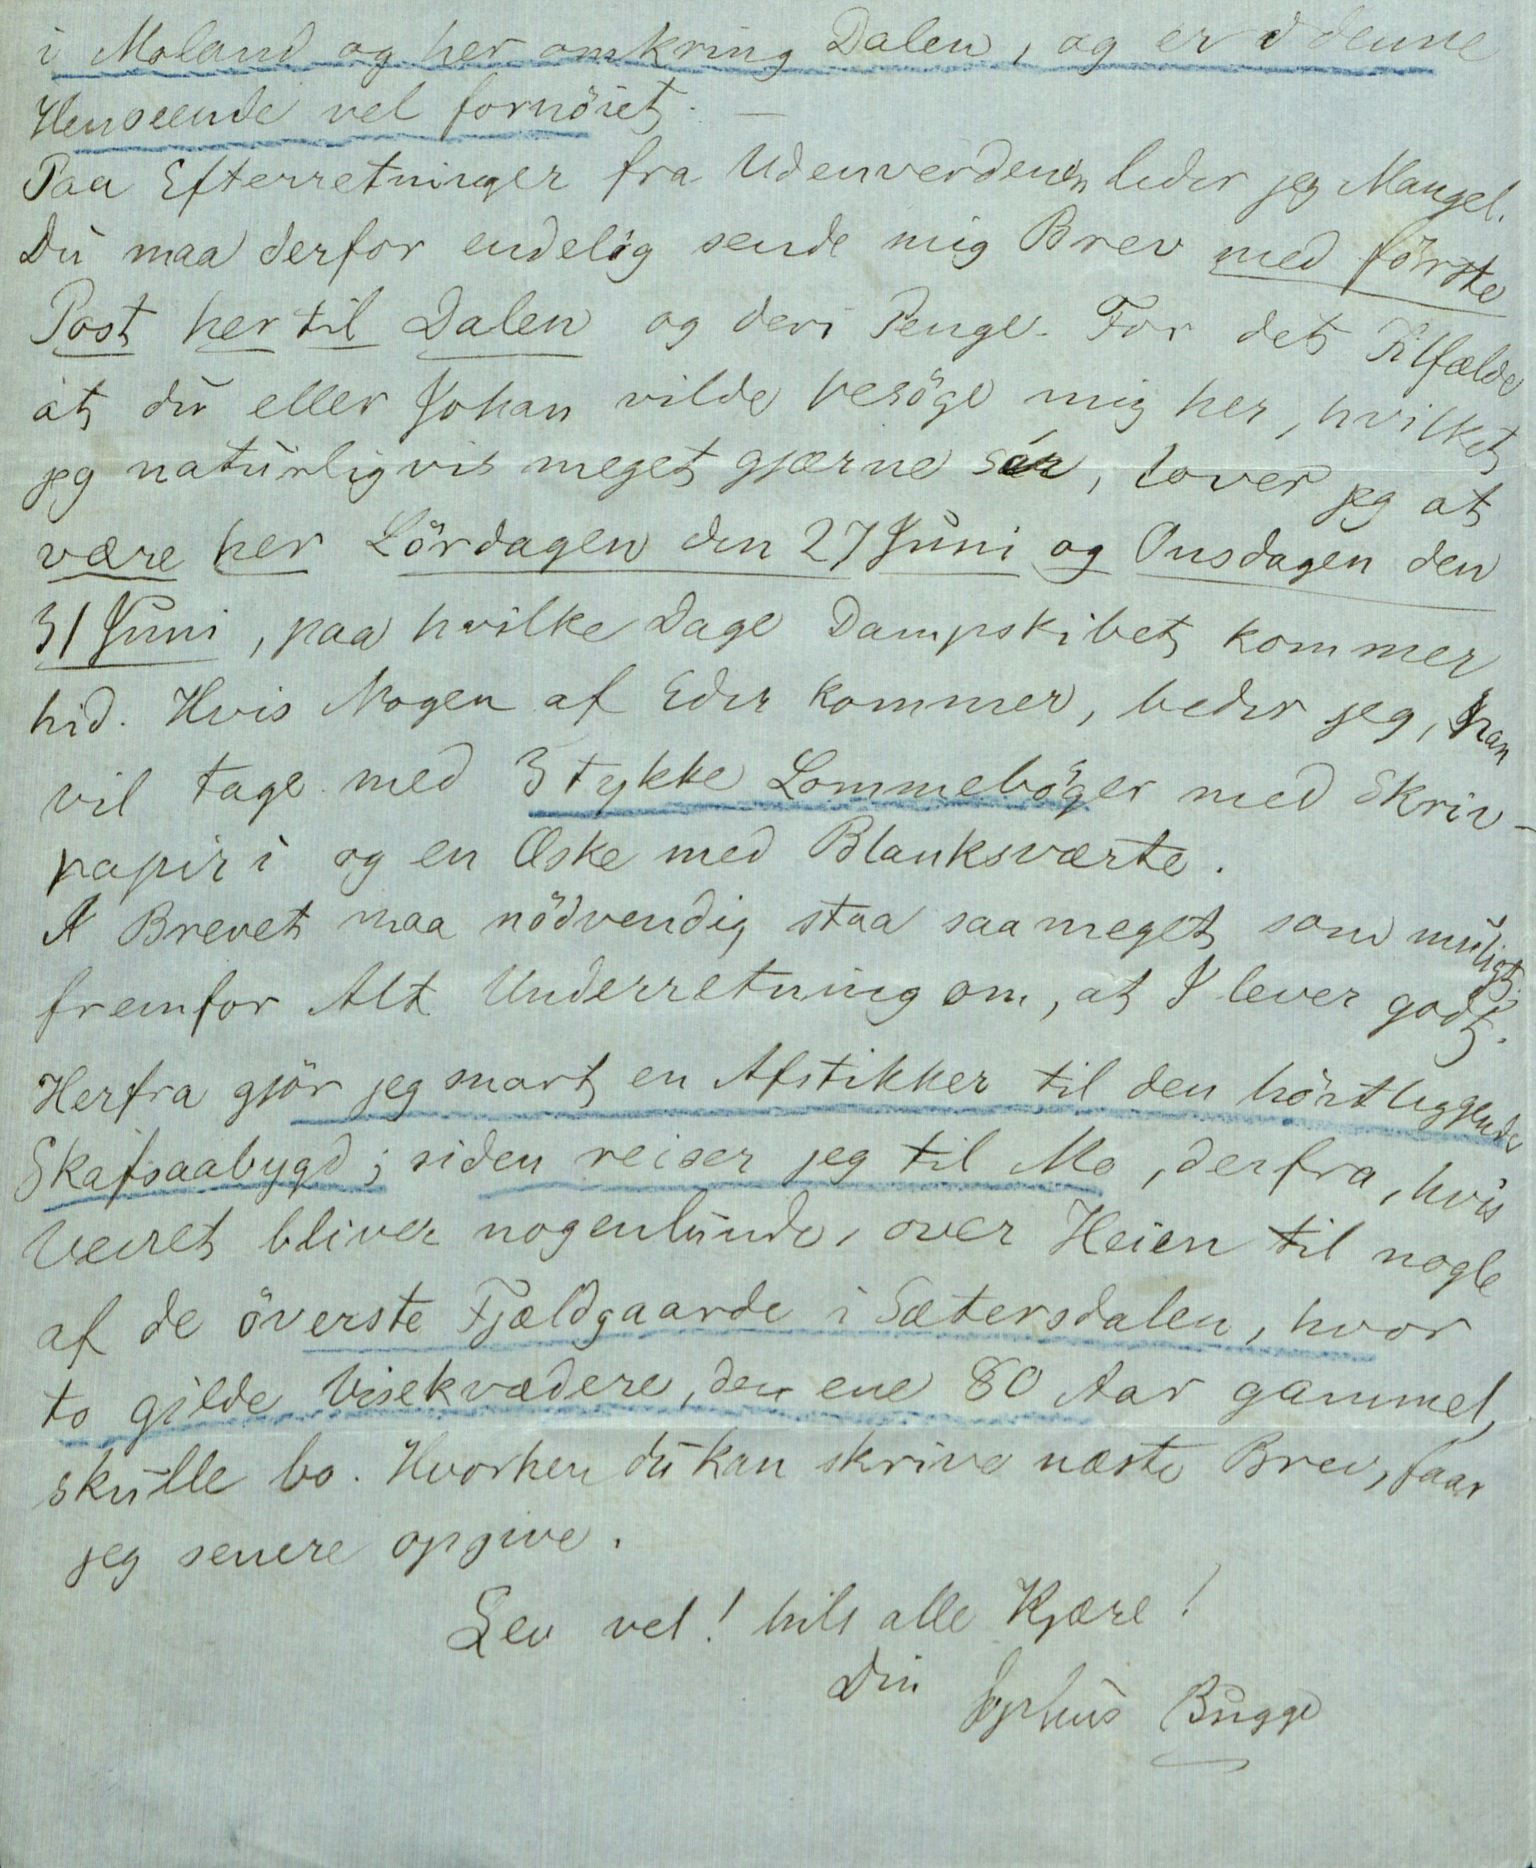 i Moland og her omkring Dalen, og er i denne
Henseende vel fornöiet. —
Paa Efterretninger fra Udenverdenen lider jeg Mangel.
Du maa derfor endelig sende mig Brev med förste
Post her til Dalen og deri Penge. For det Tilfælde
at du eller Johan vilde besöge mig her, hvilket
jeg naturligvis meget gjærne sér, lover jeg at
være her Lördagen den 27 Juni og Onsdagen den
31 Juni, paa hvilke Dage Dampskibet kommer
hid. Hvis Nogen af Eder kommer, beder jeg, han
vil tage med 3 tykke Lommeböger med Skriv-
papir i og en Æske med Blanksværte.
I Brevet maa nödvendig staa saa meget som muligt,
fremfor Alt Underretning om, at I lever godt.
Herfra gjör jeg snart en Afstikker til den höitliggende
Skafsaabygd; siden reiser jeg til Mo, derfra, hvis
Veiret bliver nogenlunde, over Heien til nogle
af de överste Fjældgaarde i Sætersdalen, hvor
to gilde Visekvædere, den ene 80 Aar gammel,
skulle bo. Hvorhen du kan skrive næste Brev, faar
jeg senere opgive.
Lev vel! hils alle Kjære!
Din Sophus Bugge